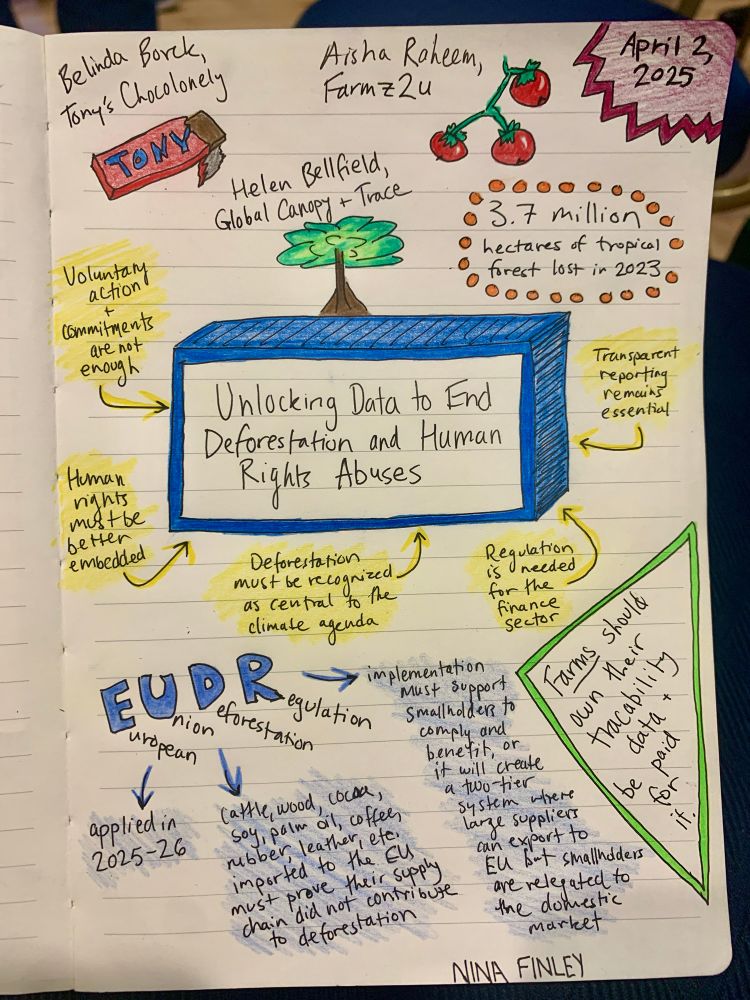 Belinda Borck,
Tony's Chocolonely
TONY
Aisha Raheem,
Farmz2u
April 2,
2025
Helen Bellfield,
Global Canopy + Trace
3.7 million
hectares of tropical
forest lost in 2023
Voluntary
action
+
commitments
are not
enough
Transparent
reporting
remains
essential
Unlocking Data to End
Deforestation and Human
Rights Abuses
Human
rights
must be
better
embedded
Deforestation
must be recognized
as central to the
climate agenda
Regulation
is needed
for the
finance
sector
Farms should
own their
tracability
data +
be paid
for it!
EUDR
uropean
nion
eforestation
egulation
applied in
2025-26
cattle, wood, cocoa,
soy, palm oil, coffee,
rubber, leather, etc.
imported to the EU
must prove their supply
chain did not contribute
to deforestation
implementation
must support
smallholders to
comply and
benefit, or
it will create
a two-tier
system where
large suppliers
can export to
EU but smallholders
are relegated to
the domestic
market
NINA FINLEY